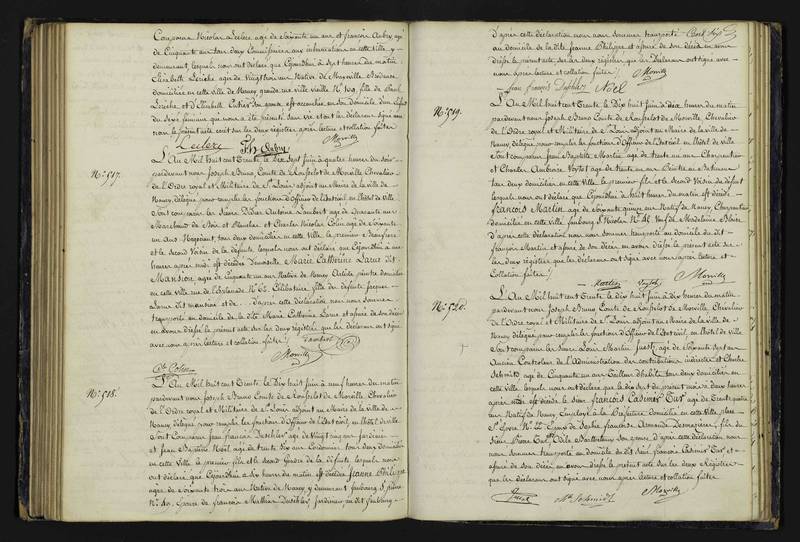 Comparus Nicolas Leclerc agé de Soixante un ans et françois Aubry, agé
de Cinquante un tous deux Commissaires aux inhumations en cette Ville y
demeurant, lesquels nous ont déclaré que Cejourdhui à Sept heures du matin
Elisabeth agée de Vingt trois ans Native de
domiciliée en cette ville de Nancy, grande rue ville vieille N° 109, fille de Paul
et d'Elisabeth son épouse, est accouchée en son domicile d'un Enfant
du Sexe féminin qui nous a été présenté sans vie et ont les déclarans signé avec
nous le présent acte écrit sur les deux registres, après lecture et collation faites
Leclerc Fs Aubry Morville
N° 517.
L'An Mil huit cent Trente le Dix Sept juin à quatre heures du soir
pardevant nous Joseph Bruno Comte de Morville Chevalier
de l'Ordre royal et Militaire de St Louis adjoint au Maire de la ville de
Nancy, délégué pour remplir les fonctions d'Officier de l'Etat civil en l'hôtel de Ville
Sont comparus les Sieurs Didier Antoine Lambert agé de quarante ans
Marchand de Bois et Planches et Charles Nicolas Colin agé de Soixante
un Ans Négociant tous deux domiciliés en cette ville, le premier
et le second Voisin de la défunte, lesquels nous ont déclaré que Cejourdhui à une
heure après midi est décédée Demoiselle Marie Catherine Larue dit
Mansion, agée de Cinquante un ans Native de Nancy Artiste peintre domiciliée
en cette ville rue de l'Esplanade N° 65 Célibataire, fille des défunts Jacques
Larue dit mansion et de . . . d'après cette déclaration nous nous sommes
transporté au domicile de la dite Marie Catherine Larue et assuré de son décès
en avons dressé le présent acte sur les deux registres que les déclarans ont signé
avec nous après lecture et collation faites Lambert
Morville
Ch Colin
N° 518.
L'An Mil huit cent Trente le Dix huit juin à neuf heures du matin
pardevant nous Joseph Bruno Comte de Morville Chevalier
de l'Ordre royal et Militaire de St Louis, adjoint au Maire de la ville de
Nancy délégué pour remplir les fonctions d'Officier de l'Etat civil, en l'hôtel de ville
Sont Comparus Jean françois agé de Vingt cinq ans Jardinier
et Jean Baptiste Noël agé de Trente Six ans Cordonnier tous deux domiciliés
en cette Ville le premier fils et le second Gendre de la défunte lesquels nous
ont déclaré que Cejourdhui à Six heures du matin est décédée Jeanne Philippe
agée de Soixante trois ans Native de Nancy y demeurant faubourg St pierre
N° 40, Epouse de françois Mathias Jardinier, au dit faubourg
D'après cette déclaration nous nous sommes transporté
au domicile de la dite Jeanne Philippe et assuré de son décès en avons
dressé le présent acte sur les deux registres que les Déclarans ont signé avec
nous après lecture et collation faites Morville
Jean François Noël
N° 519.
L'An Mil huit cent Trente le Dix huit juin à dix heures du matin
pardevant nous Joseph Bruno Comte de Morville, Chevalier
de l'Ordre royal et Militaire de St Louis adjoint au Maire de la ville de
Nancy, délégué pour remplir les fonctions d'Officier de l'Etat civil en l'hôtel de Ville
Sont comparus Jean Baptiste Martin agé de trente un ans Charpentier
et Charles Ambroise Voytot agé de trente un ans Peintre en Batiment
tous deux domiciliés en cette Ville, le premier fils et le Second Voisin du défunt
lesquels nous ont déclaré que Cejourdhui à huit heures du matin est décédé
François Martin agé de Soixante quinze ans Natif de Nancy, Charpentier
domicilié en cette Ville faubourg St Nicolas N° 21 Veuf de Madelaine
D'après cette déclaration nous nous sommes transporté au domicile du dit
François Martin et assuré de son décès en avons dressé le présent acte sur
les deux registres que les déclarans ont signé avec nous après lecture et
Collation faites
Martin Voytot Morville
N° 520.
L'An Mil huit cent Trente le Dix huit juin à dix heures du matin
pardevant nous Joseph Bruno Comte de Morville, Chevalier
de l'Ordre royal et Militaire de St Louis adjoint au Maire de la ville de
Nancy, délégué pour remplir les fonctions d'Officier de l'Etat civil, en l'hôtel de ville
Sont comparus les Sieurs Louis Martin agé de Soixante Sept ans
Ancien Controleur de l'Administration des contributions indirectes et Charles
Schmidt, agé de Cinquante un ans Tailleur d'habits tous deux domiciliés en
cette Ville, lesquels nous ont déclaré que le dix Sept du présent mois à deux heures
après midi est décédé le Sieur François Casimir Tur agé de Trente quatre
ans Natif de Nancy Employé à la Préfecture domicilié en cette Ville place
St Epvre N° 22 Epoux de Sophie françoise Armande fils du
Sieur Pierre Tur son épouse, d'après cette déclaration nous
nous sommes transporté au domicile du dit Sieur françois Casimir Tur et
assuré de son décès en avons dressé le présent acte sur les deux Registres
que les déclarans ont signé avec nous après lecture et collation faites
Schmidt Morville